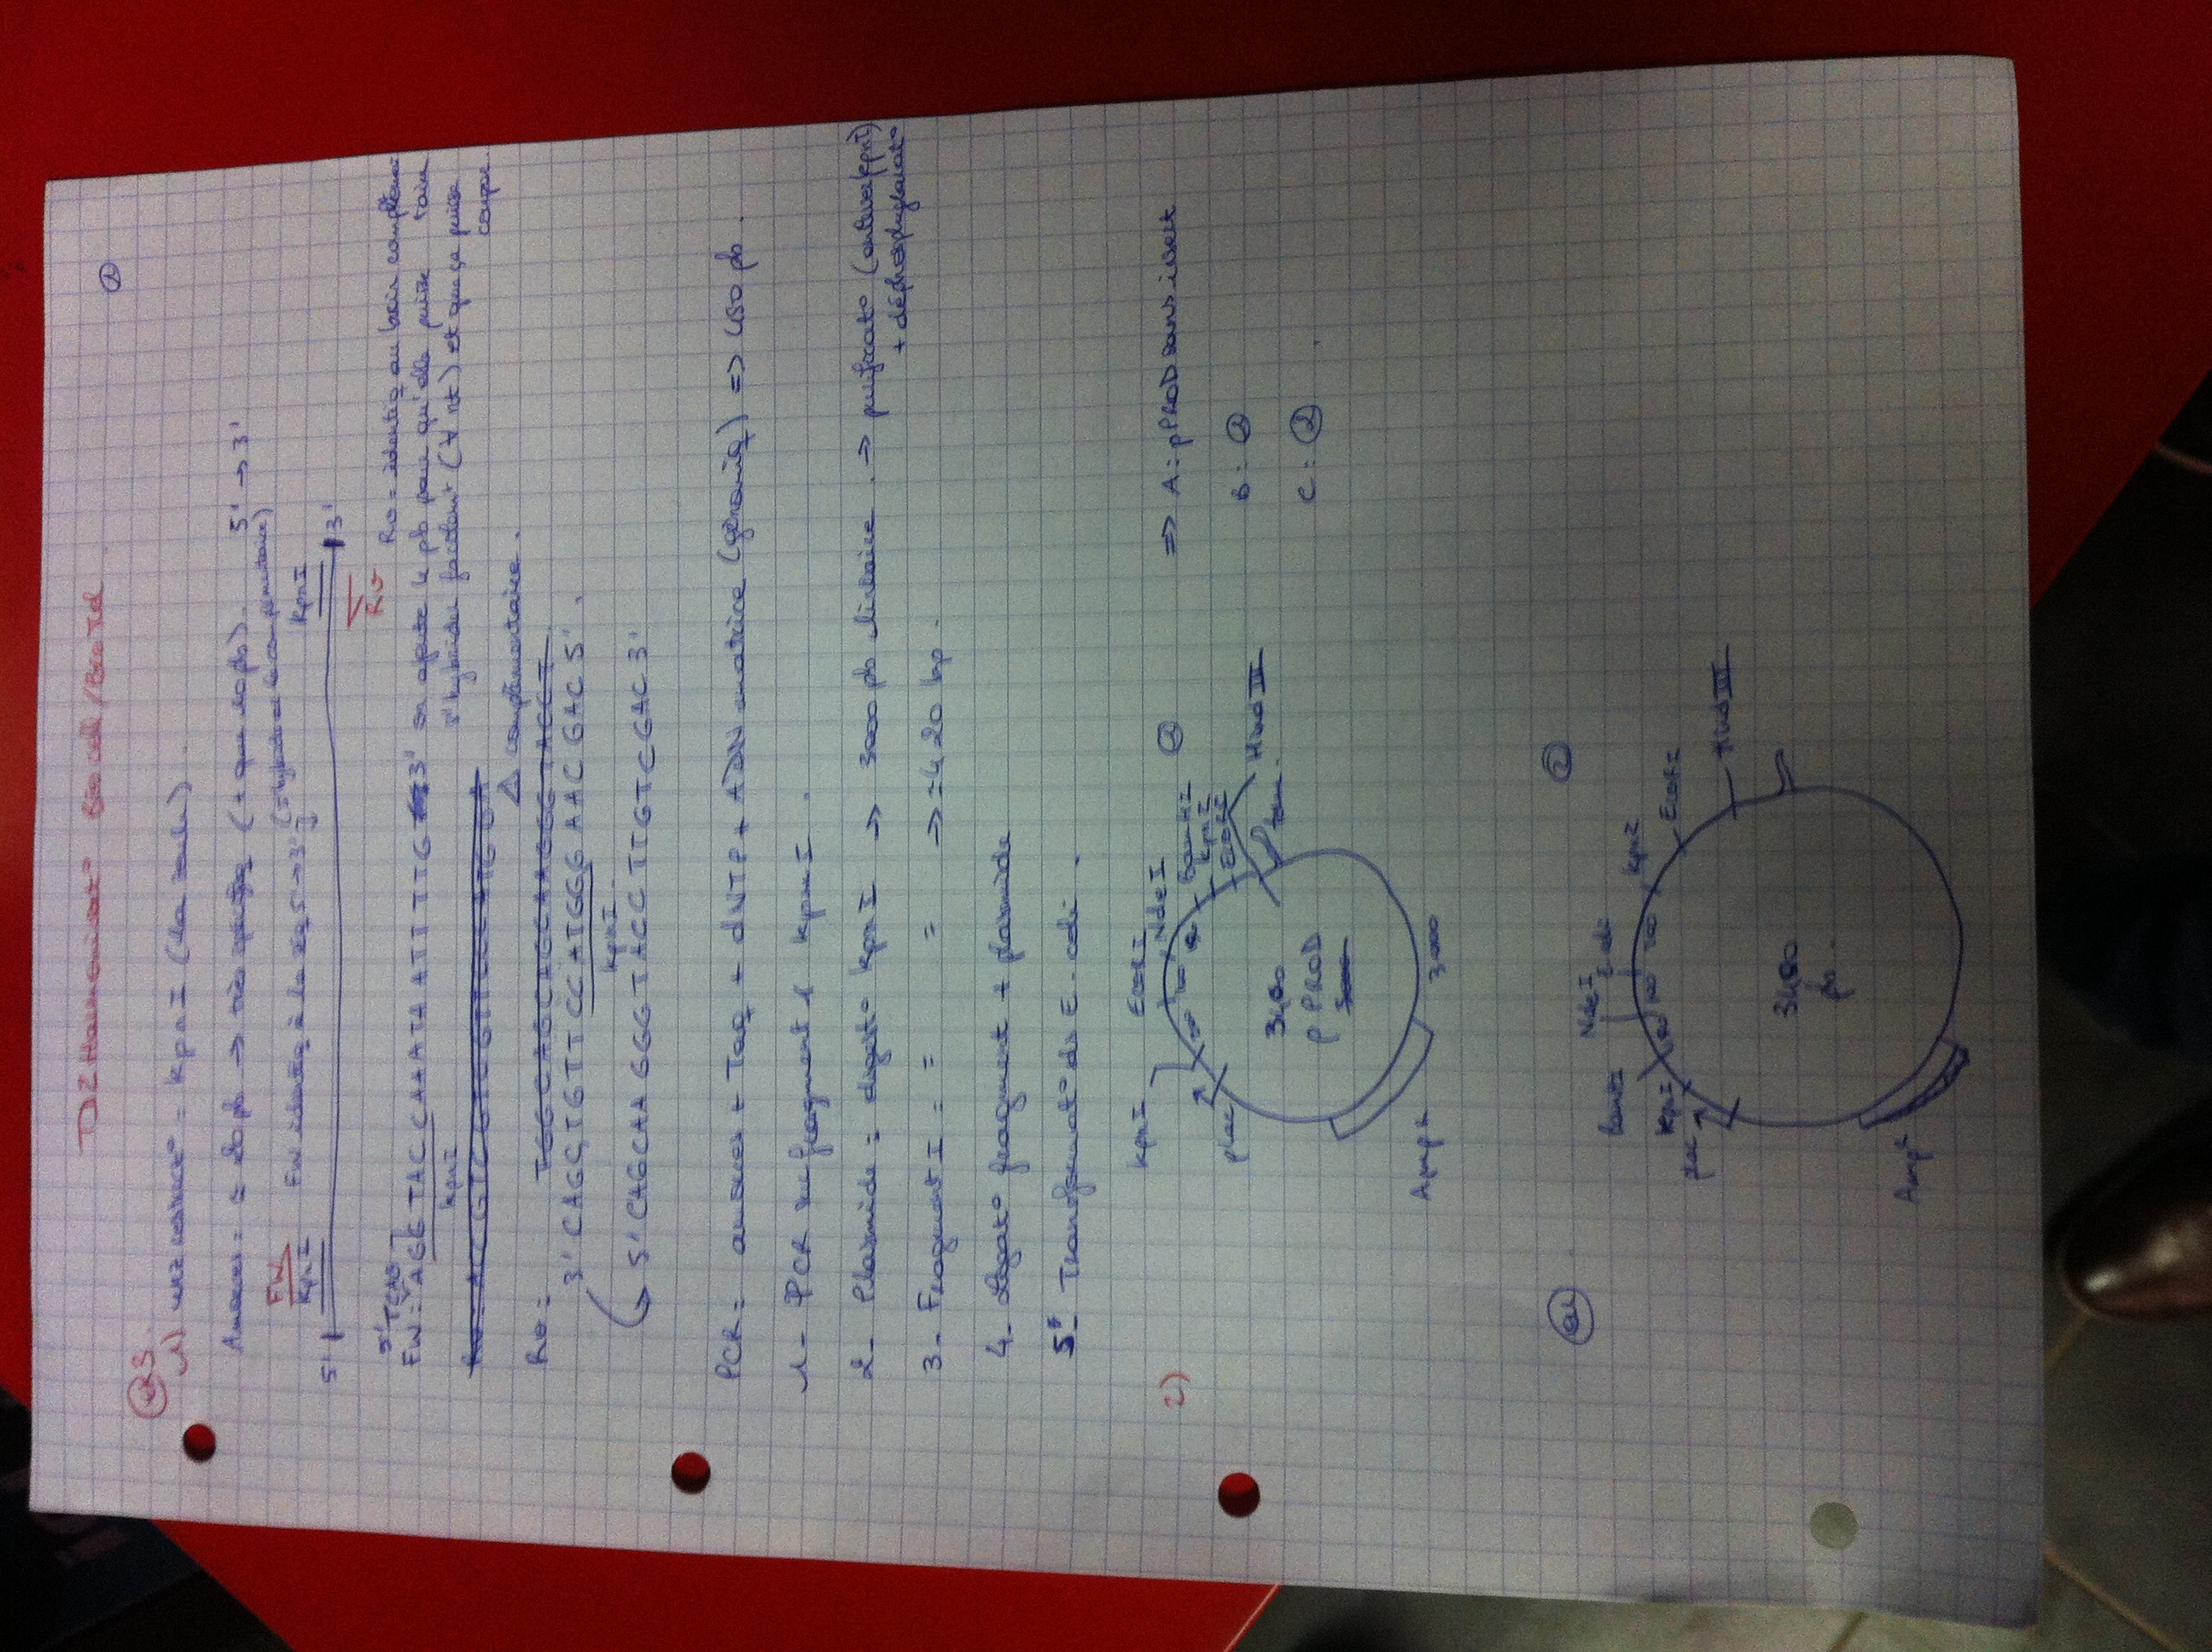 TD2 Harmonisat° Bio cell / Bio Tech
①
ex3.
1) enz restrict° = KpnI (la seule).
Amorces = ≈ 20 pb → très spécifiq (+ que 10 pb). 5' → 3'
FW
KpnI FW identiq à la sq 5' → 3' (s'hybride à la complémentaire) KpnI
5' 3'
Rv
5' TCAG Rv = identiq au brin complémen
FW = AGG TAC C AAATA ATT TTG 3' on ajoute 4 pb pour qu'elle puisse taire
KpnI s'hybrider facilemt (∀ nt) et que ça puisse
Rv = ACCGTCGTCGTTCCCATGGA couper.
⚠ complémentaire.
Rv = TGGCAGCAGCAAGGGTACCT
3' CAGCTGTT CCATGGG AAC GAC 5'.
KpnI
5' CAGCAA GGG TACC TTGTCGAC 3'
PCR = amorces + Taq + dNTP + ADN matrice (génomiq) => 450 pb.
1- PCR sur fragment 1 KpnI.
2- Plasmide = digest° KpnI → 3000 pb linéaire. → purificat° (enlever KpnI)
+ déphosphorylat°
3- Fragment I = = = → ≈ 420 bp.
4- Ligat° fragment + plasmide
5- Transformat° ds E. coli.
2)
KpnI EcoRI NdeI ① => A: pPROD sans insert
BamHI
KpnI
plac EcoRI B: ①
HindIII
3400 term.
pPROD C: ②.
3000
Amp R
3000
②
NdeI E coli
BamHI KpnI
KpnI EcoRI
plac
HindIII
3400
pb.
Amp R